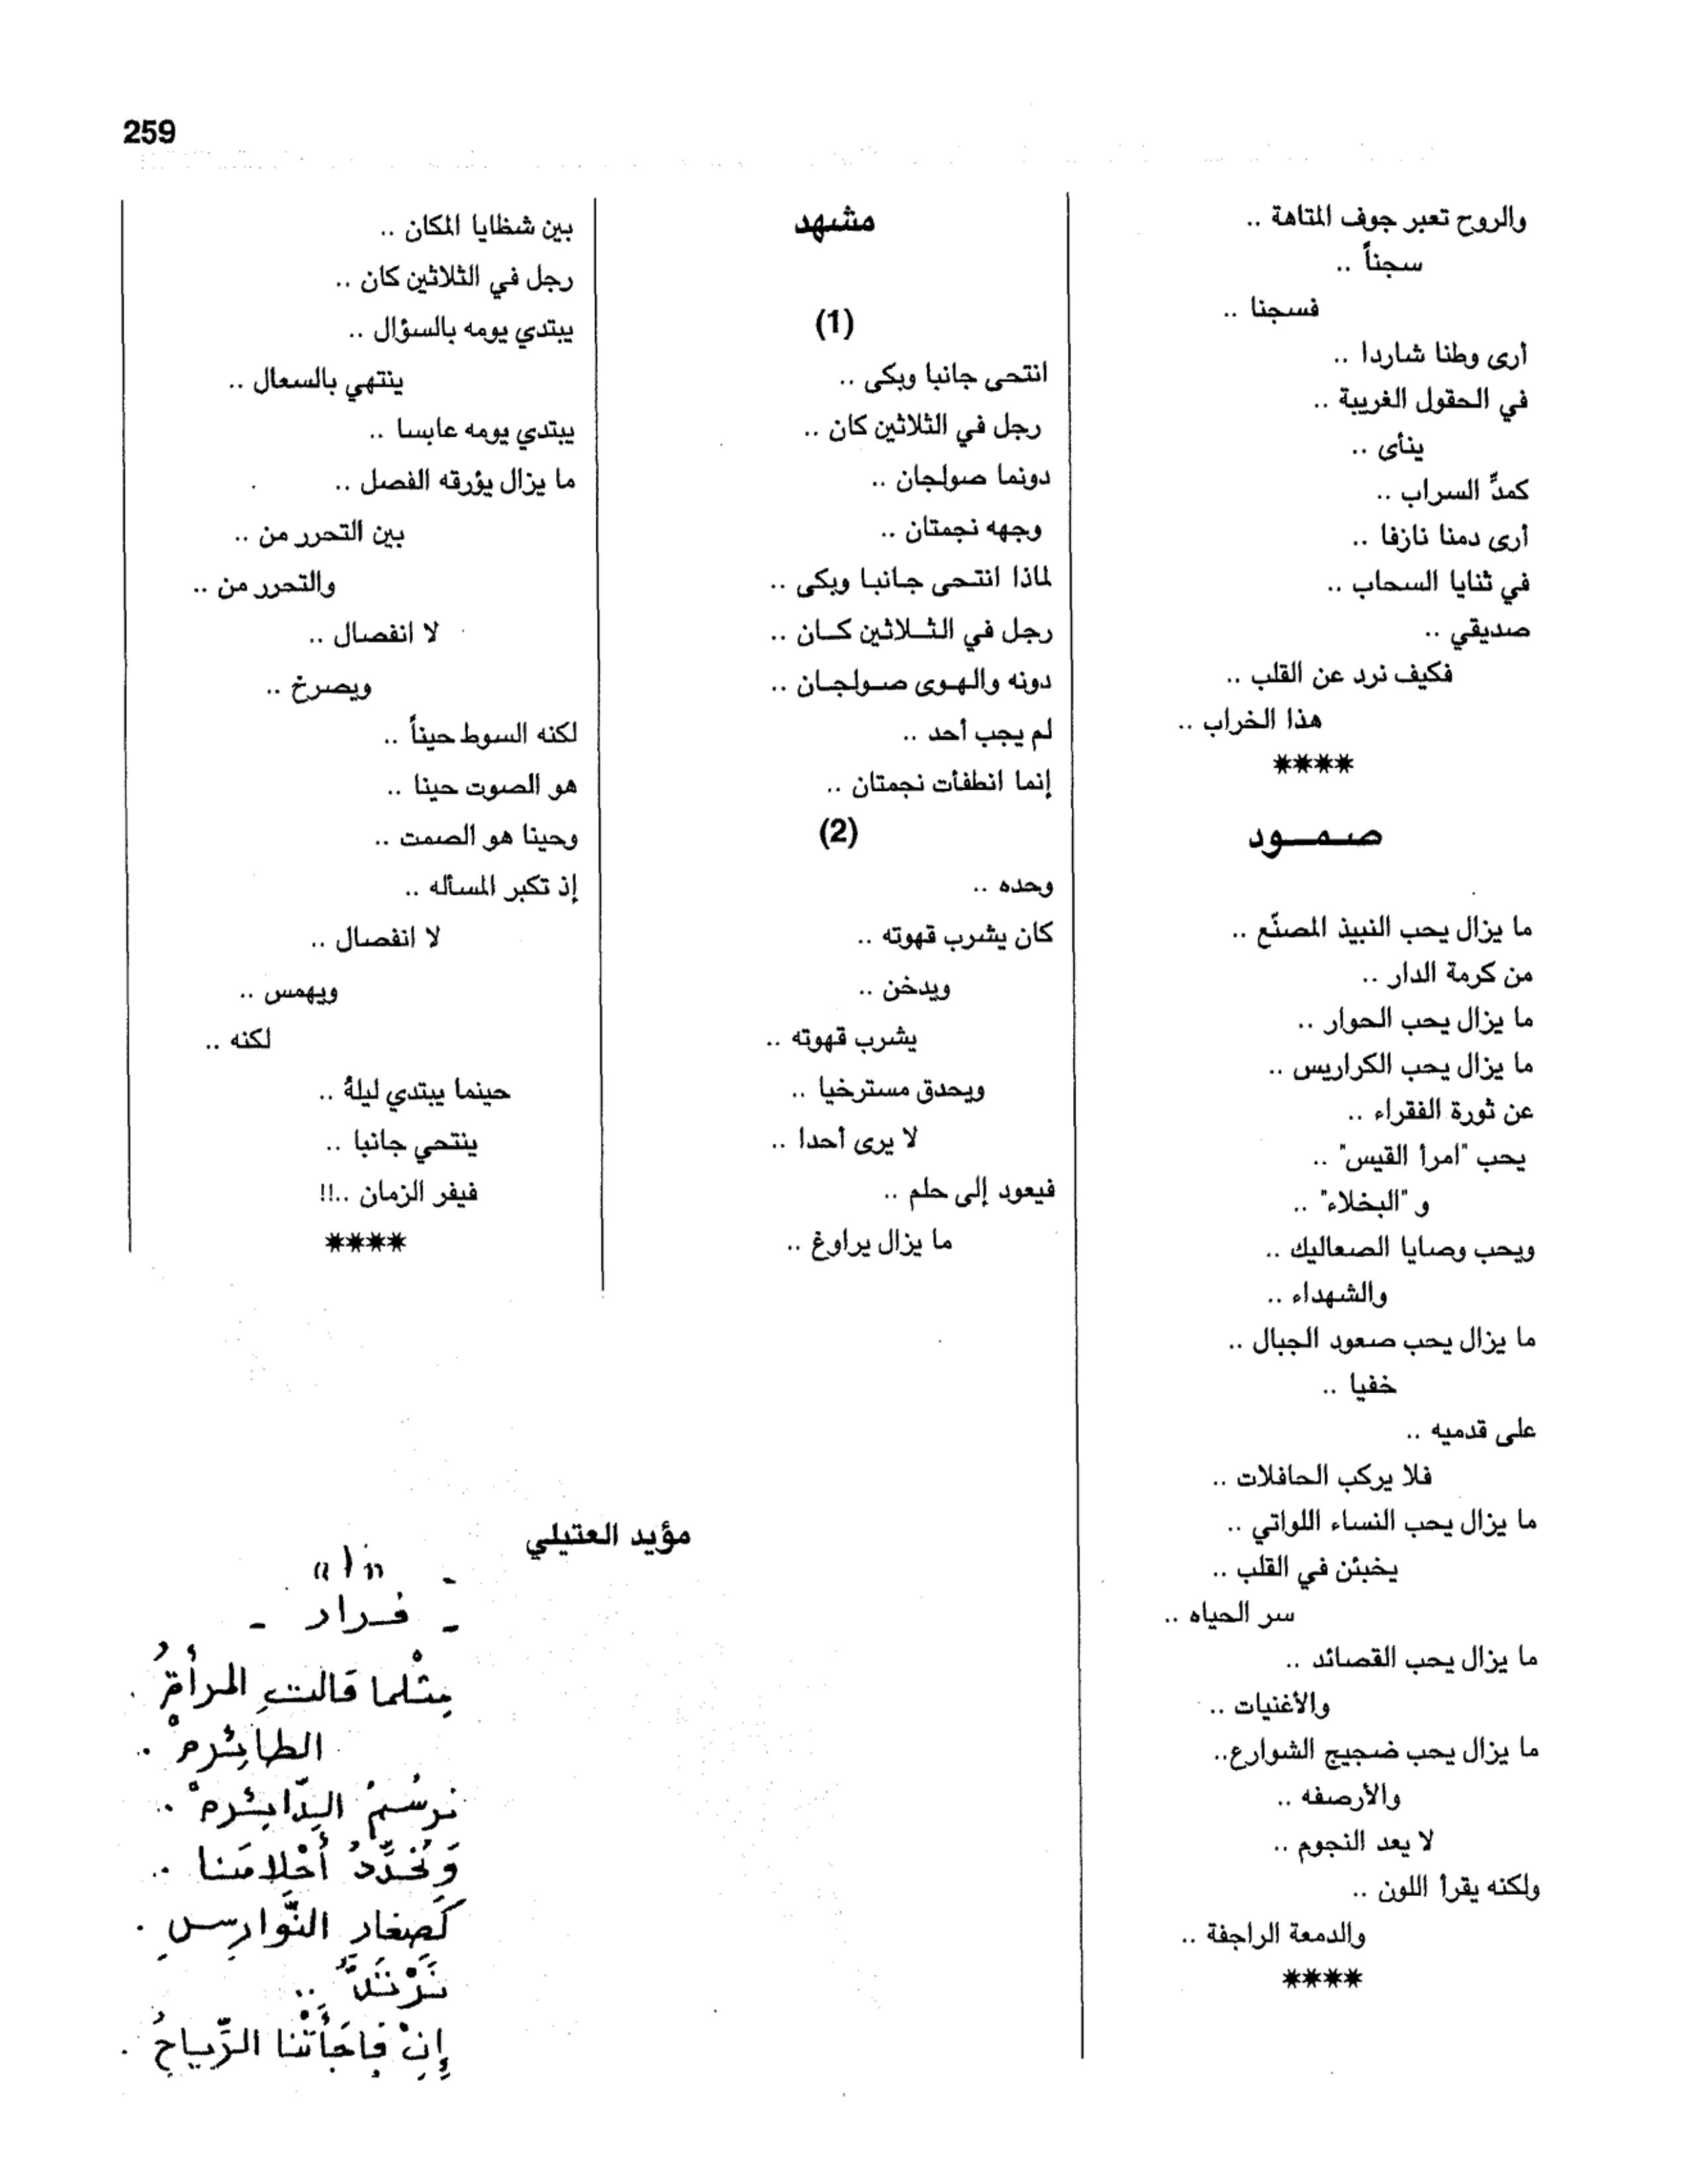 259
والروح تعبر جوف المتاهة ..
سجناً ..
فسجنا ..
أرى وطنا شاردا ..
في الحقول الغريبة ..
ينأى ..
كمدِّ السراب ..
أرى دمنا نازفا ..
في ثنايا السحاب ..
صديقي ..
فكيف نرد عن القلب ..
هذا الخراب ..
****
صـمـــود
ما يزال يحب النبيذ المصنّع ..
من كرمة الدار ..
ما يزال يحب الحوار ..
ما يزال يحب الكراريس ..
عن ثورة الفقراء ..
يحب "امرأ القيس" ..
و "البخلاء" ..
ويحب وصايا الصعاليك ..
والشهداء ..
ما يزال يحب صعود الجبال ..
خفيا ..
على قدميه ..
فلا يركب الحافلات ..
ما يزال يحب النساء اللواتي ..
يخبئن في القلب ..
سر الحياه ..
ما يزال يحب القصائد ..
والأغنيات ..
ما يزال يحب ضجيج الشوارع..
والأرصفه ..
لا يعد النجوم ..
ولكنه يقرأ اللون ..
والدمعة الراجفة ..
****
مشهد
(1)
انتحى جانبا وبكى ..
رجل في الثلاثين كان ..
دونما صولجان ..
وجهه نجمتان ..
لماذا انتحى جانبا وبكى ..
رجل في الثلاثين كان ..
دونه والهوى صولجان ..
لم يجب أحد ..
إنما انطفأت نجمتان ..
(2)
وحده ..
كان يشرب قهوته ..
ويدخن ..
يشرب قهوته ..
ويحدق مسترخيا ..
لا يرى أحدا ..
فيعود إلى حلم ..
ما يزال يراوغ ..
بين شظايا المكان ..
رجل في الثلاثين كان ..
يبتدي يومه بالسؤال ..
ينتهي بالسعال ..
يبتدي يومه عابسا ..
ما يزال يؤرقه الفصل ..
بين التحرر من ..
والتحرر من ..
لا انفصال ..
ويصرخ ..
لكنه السوط حيناً ..
هو الصوت حينا ..
وحينا هو الصمت ..
إذ تكبر المسأله ..
لا انفصال ..
ويهمس ..
لكنه ..
حينما يبتدي ليلهُ ..
ينتحي جانبا ..
فيفر الزمان ..!!
****
مؤيد العتيلي
"١"
- فـرار -
مِثْلما قالتِ المرأةُ .
الطائِرهْ .
نرسُمُ الدّائِرهْ ..
وَنُحَدِّدُ أَحْلامَنا ..
كَصِغار النَّوارِسِ .
نَرْتَدُّ ..
إِنْ فاجَأَتْنا الرِّياحُ .